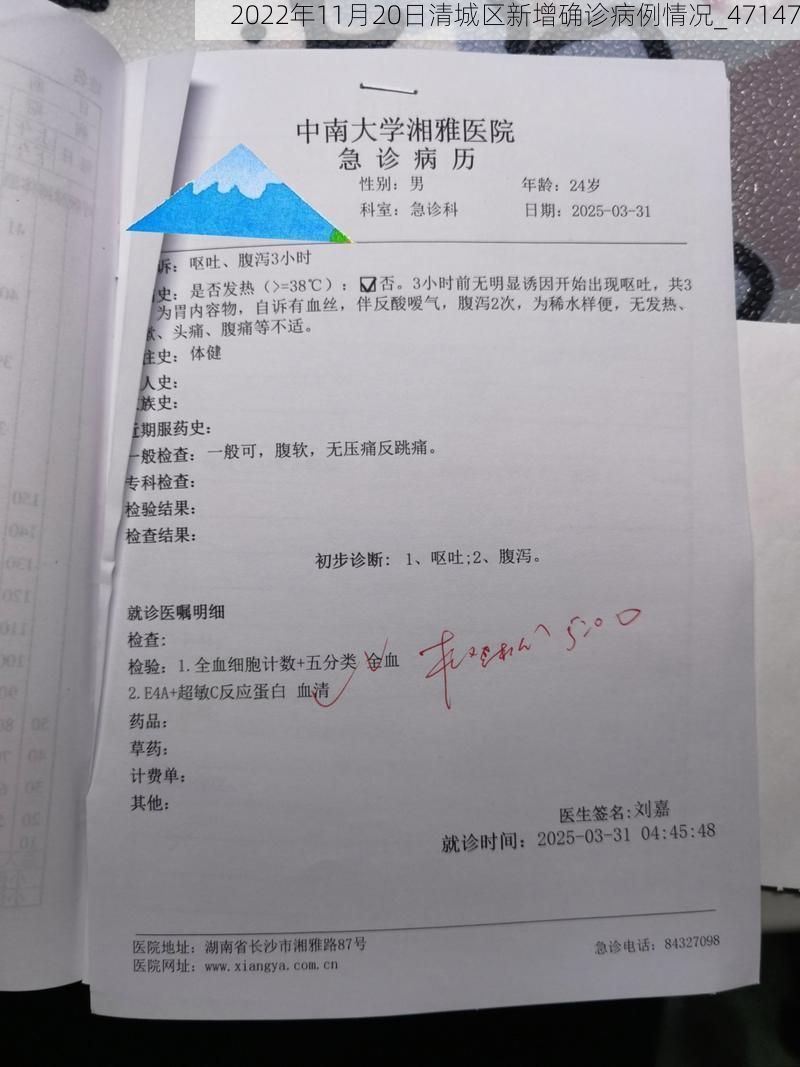 2022年11月20日清城区新增确诊病例情况_47147
中南大学湘雅医院
急诊病历
性别：男 年龄：24岁
科室：急诊科 日期：2025-03-31
诉：呕吐、腹泻3小时
史：是否发热（>=38℃）：☑否。3小时前无明显诱因开始出现呕吐，共3
为胃内容物，自诉有血丝，伴反酸嗳气，腹泻2次，为稀水样便，无发热、
、头痛、腹痛等不适。
往史：体健
人史：
族史：
近期服药史：
一般检查：一般可，腹软，无压痛反跳痛。
专科检查：
检验结果：
检查结果：
初步诊断： 1、呕吐;2、腹泻。
就诊医嘱明细
检查：
检验：1.全血细胞计数+五分类 全血
2.E4A+超敏C反应蛋白 血清
5:00
药品：
草药：
计费单：
其他：
医生签名:刘嘉
就诊时间：2025-03-31 04:45:48
医院地址：湖南省长沙市湘雅路87号 急诊电话：84327098
医院网址：www.xiangya.com.cn